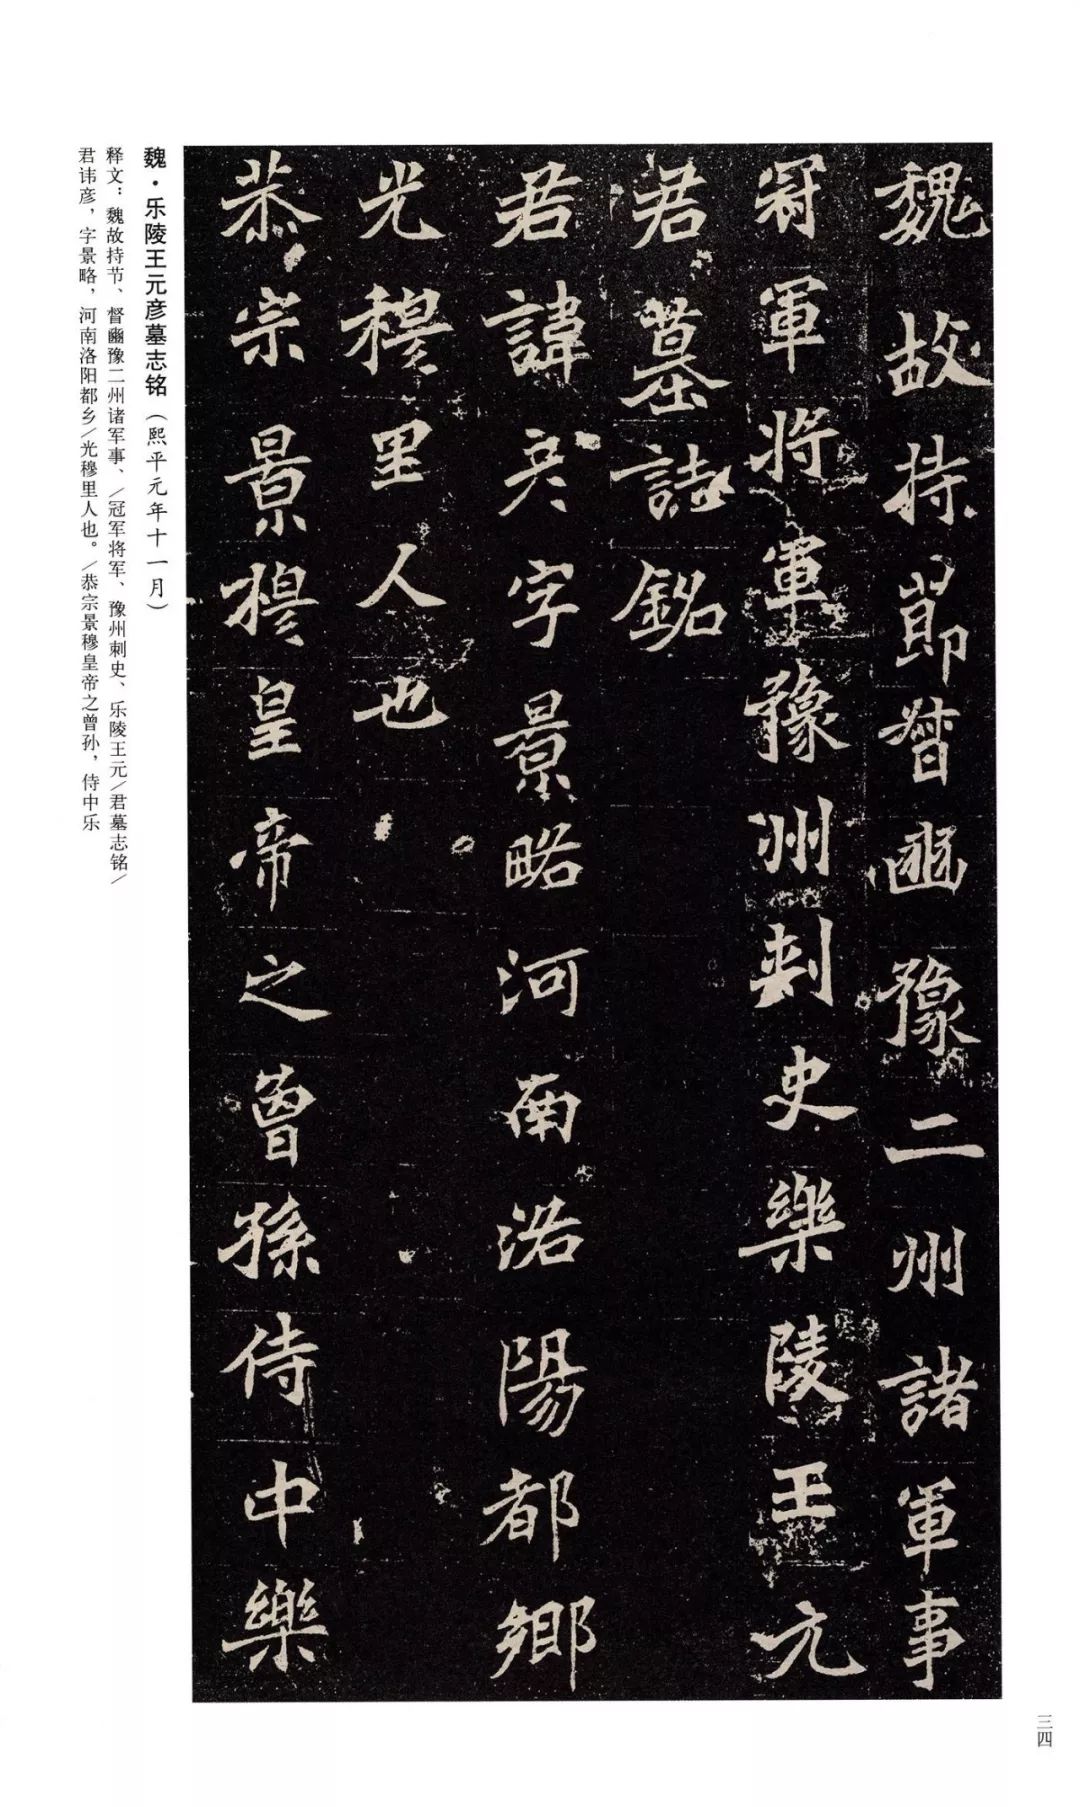 魏故持節督豳豫二州諸軍事
冠軍將軍豫州刺史樂陵王元
君墓誌銘
君諱彥字景略河南洛陽都鄉
光穆里人也
恭宗景穆皇帝之曾孫侍中樂
魏·乐陵王元彦墓志铭（熙平元年十一月）
释文：魏故持节、督豳豫二州诸军事、/冠军将军、豫州刺史、乐陵王元/君墓志铭/
君讳彦，字景略，河南洛阳都乡/光穆里人也。/恭宗景穆皇帝之曾孙，侍中乐
三四